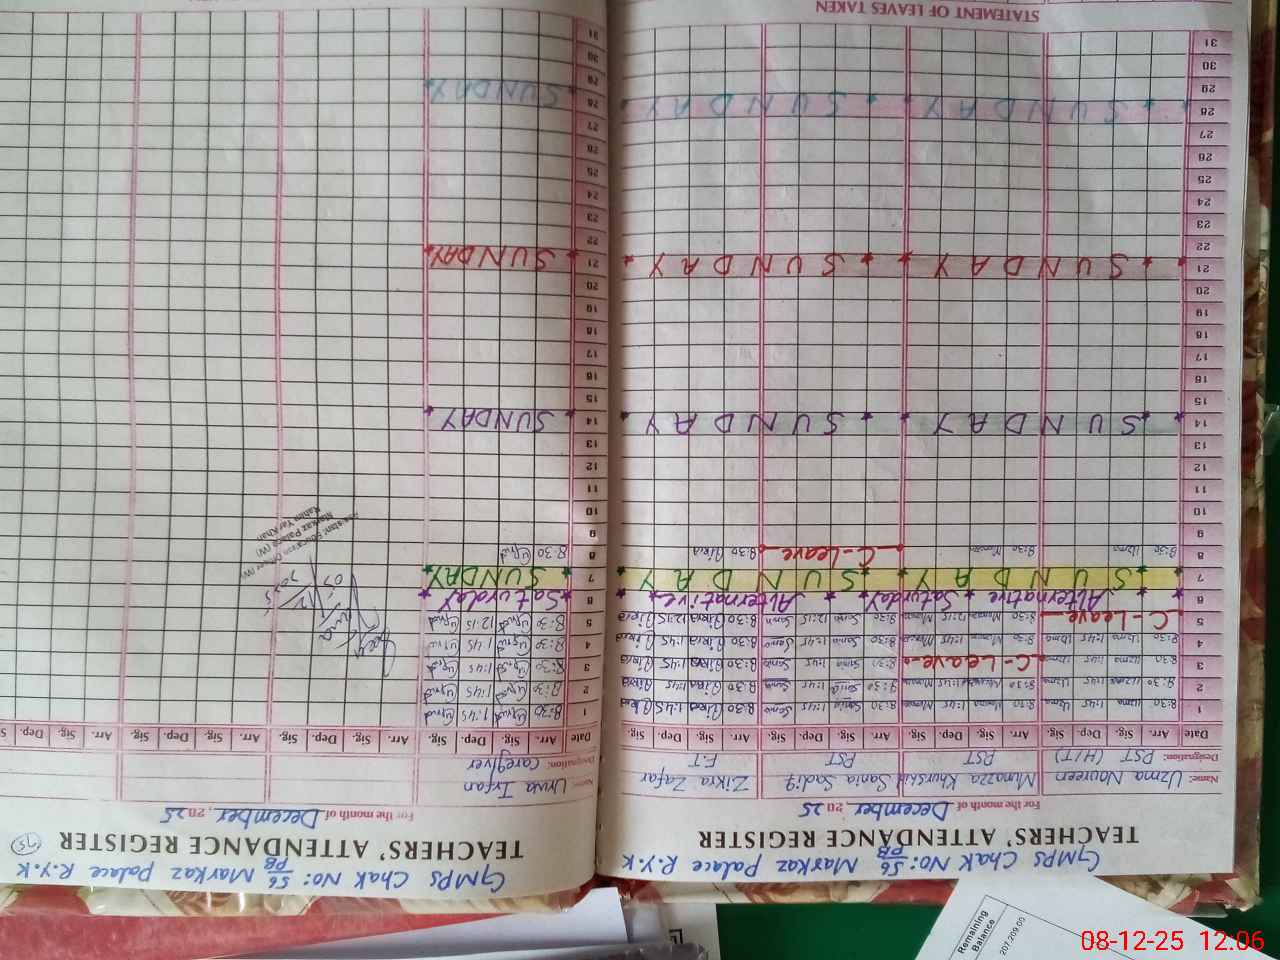 GMPS Chak No: 56/PB Markaz Palace R.Y.K
TEACHERS' ATTENDANCE REGISTER
For the month of December, 2025
Name: Uzma Naureen Munazza Khurshid Sania Sadiq Zikra Zafar
Designation: PST (H/T) PST PST E.T
Date Arr. Sig. Dep. Sig. Arr. Sig. Dep. Sig. Arr. Sig. Dep. Sig. Arr. Sig. Dep. Sig.
1 8:30 Uzma 1:45 Uzma 8:30 1:45 8:30 1:45 8:30 1:45
2 8:30 Uzma 1:45 Uzma 8:30 1:45 8:30 1:45 8:30 1:45
3 8:30 Uzma 1:45 Uzma C-Leave 8:30 1:45 8:30 1:45
4 8:30 Uzma 1:45 Uzma 8:30 1:45 8:30 1:45 8:30 1:45
5 C-Leave 8:30 12:15 8:30 12:15 8:30 12:15
6 Alternative Saturday Alternative
7 SUNDAY SUNDAY
8 8:30 Uzma 8:30 C-Leave 8:30
9
10
11
12
13
14 SUNDAY SUNDAY
15
16
17
18
19
20
21 SUNDAY SUNDAY
22
23
24
25
26
27
28 SUNDAY SUNDAY
29
30
31
STATEMENT OF LEAVES TAKEN
GMPS Chak No: 56/PB Markaz Palace R.Y.K
TEACHERS' ATTENDANCE REGISTER 75
For the month of December, 2025
Name: Urwa Irfan
Designation: Caregiver
Date Arr. Sig. Dep. Sig. Arr. Sig. Dep. Sig. Arr. Sig. Dep. Sig. Arr. Sig. Dep. S
1 8:30 1:45
2 8:30 1:45
3 8:30 1:45
4 8:30 1:45
5 8:30 12:15
6 Saturday
7 SUNDAY
8 8:30
9
10
11
12
13
14 SUNDAY
15
16
17
18
19
20
21 SUNDAY
22
23
24
25
26
27
28 SUNDAY
29
30
31
Assistant Education Officer (W)
Markaz Palace (W)
Rahim Yar Khan
Remaining
Balance
207,209.00
08-12-25 12:06